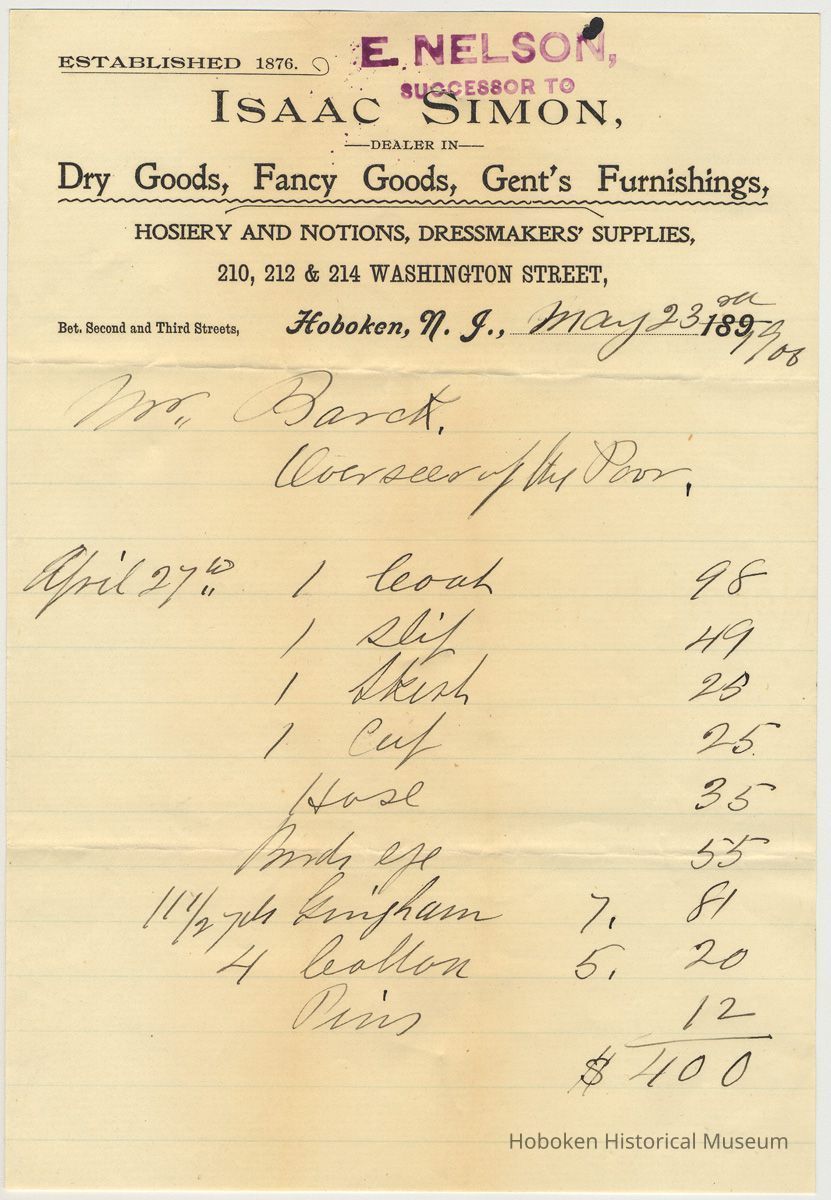 ESTABLISHED 1876.
E. NELSON,
SUCCESSOR TO
ISAAC SIMON,
DEALER IN
Dry Goods, Fancy Goods, Gent's Furnishings,
HOSIERY AND NOTIONS, DRESSMAKERS' SUPPLIES,
210, 212 & 214 WASHINGTON STREET,
Bet. Second and Third Streets, Hoboken, N. J., May 23rd 189 1900
Mr. Barck.
Overseer of the Poor.
April 27th 1 Coat 98
1 Slip 49
1 Skirt 25
1 Cap 25
Hose 35
Birds eye 55
11 1/2 yds Gingham 7. 81
4 Cotton 5. 20
Pins 12
$ 400
Hoboken Historical Museum